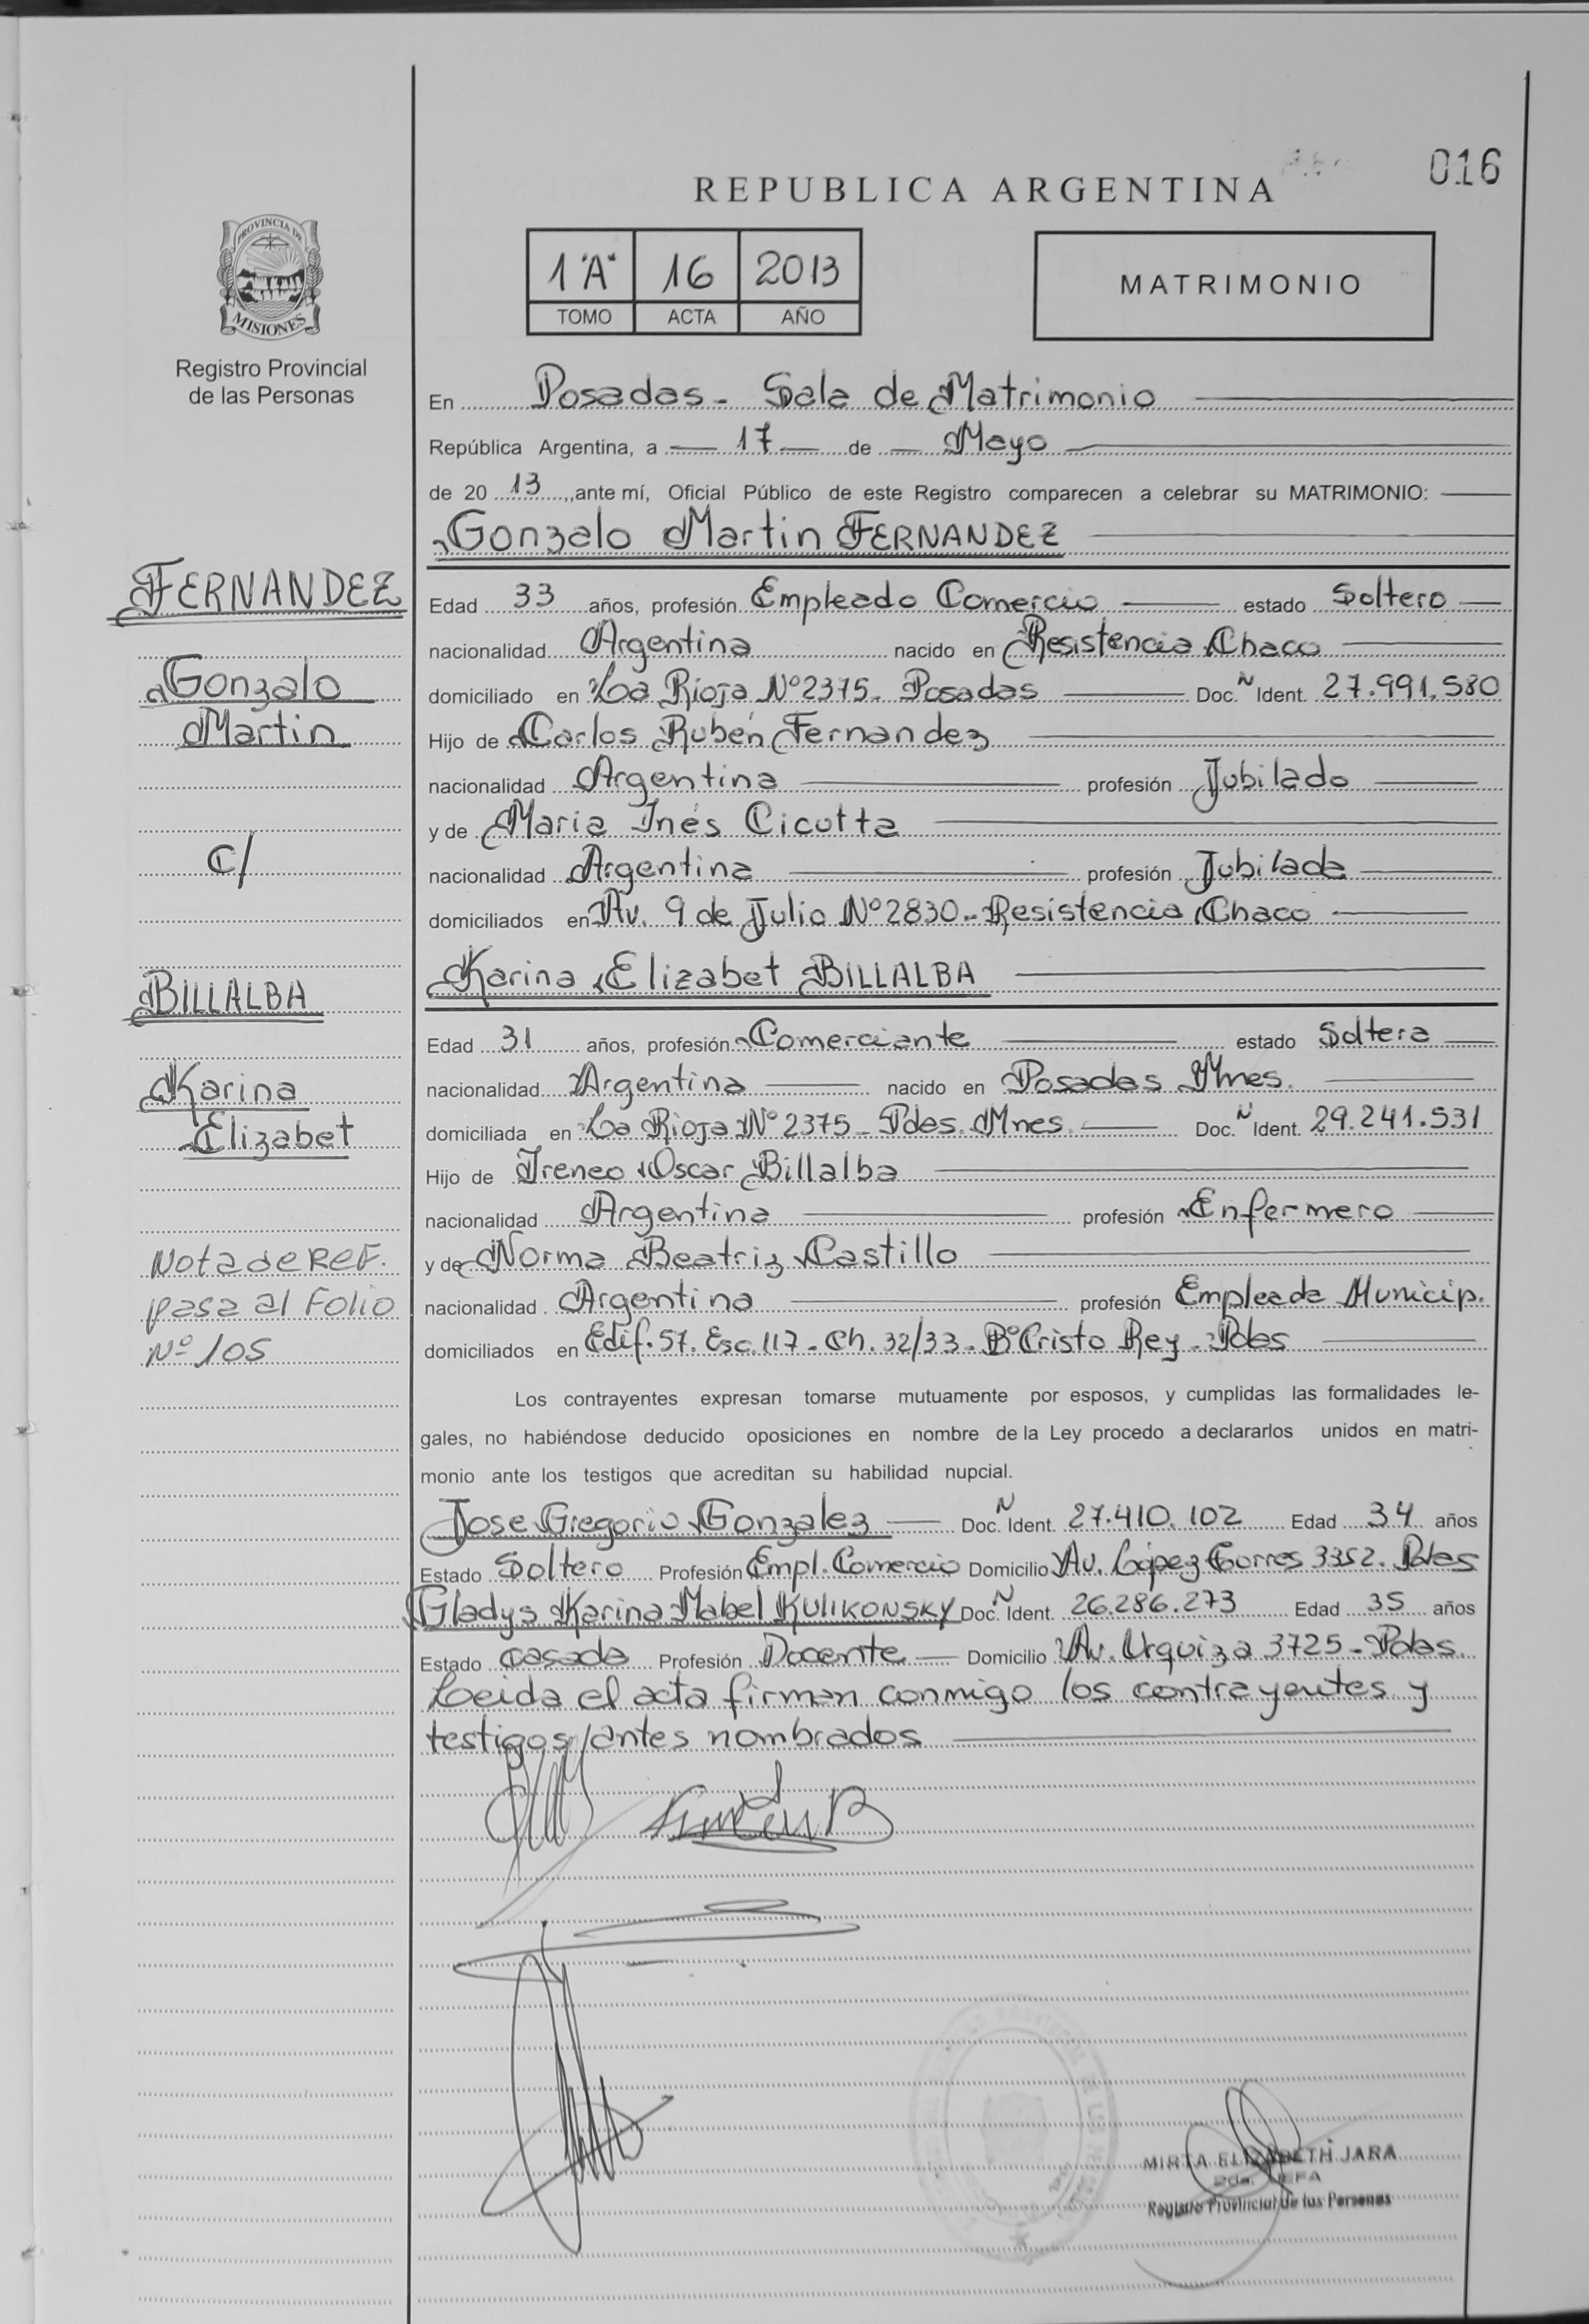 016
REPUBLICA ARGENTINA
PROVINCIA DE
MISIONES
Registro Provincial
de las Personas
1 "A" 16 2013
TOMO ACTA AÑO
MATRIMONIO
En Posadas - Sala de Matrimonio
República Argentina, a 17 de Mayo
de 20 13, ante mí, Oficial Público de este Registro comparecen a celebrar su MATRIMONIO:
Gonzalo Martin FERNANDEZ
FERNANDEZ
Gonzalo
Martin
C/
BILLALBA
Karina
Elizabet
Nota de Ref.
pasa al Folio
Nº 105
Edad 33 años, profesión Empleado Comercio estado Soltero
nacionalidad Argentina nacido en Resistencia Chaco
domiciliado en La Rioja Nº 2375 - Posadas Doc. N Ident. 27.991.580
Hijo de Carlos Rubén Fernandez
nacionalidad Argentina profesión Jubilado
y de Maria Inés Cicutta
nacionalidad Argentina profesión Jubilada
domiciliados en Av. 9 de Julio Nº 2830 - Resistencia Chaco
Karina Elizabet BILLALBA
Edad 31 años, profesión Comerciante estado Soltera
nacionalidad Argentina nacido en Posadas Mnes.
domiciliada en La Rioja Nº 2375 - Pdas. Mnes. Doc. N Ident. 29.241.531
Hijo de Ireneo Oscar Billalba
nacionalidad Argentina profesión Enfermero
y de Norma Beatriz Castillo
nacionalidad Argentina profesión Empleada Municip.
domiciliados en Edif. 57. Esc. 117 - Ch. 32/33 - Bº Cristo Rey - Pdas
Los contrayentes expresan tomarse mutuamente por esposos, y cumplidas las formalidades le-
gales, no habiéndose deducido oposiciones en nombre de la Ley procedo a declararlos unidos en matri-
monio ante los testigos que acreditan su habilidad nupcial.
Jose Gregorio Gonzalez Doc. N Ident. 27.410.102 Edad 34 años
Estado Soltero Profesión Empl. Comercio Domicilio Av. López Torres 3352. Pdas
Gladys Karina Mabel KULIKONSKY Doc. N Ident. 26.286.273 Edad 35 años
Estado casada Profesión Docente Domicilio Av. Urquiza 3725 - Pdas.
Leida el acta firman conmigo los contrayentes y
testigos antes nombrados
MIRTA ELIZABETH JARA
2da. JEFA
Registro Provincial de las Personas